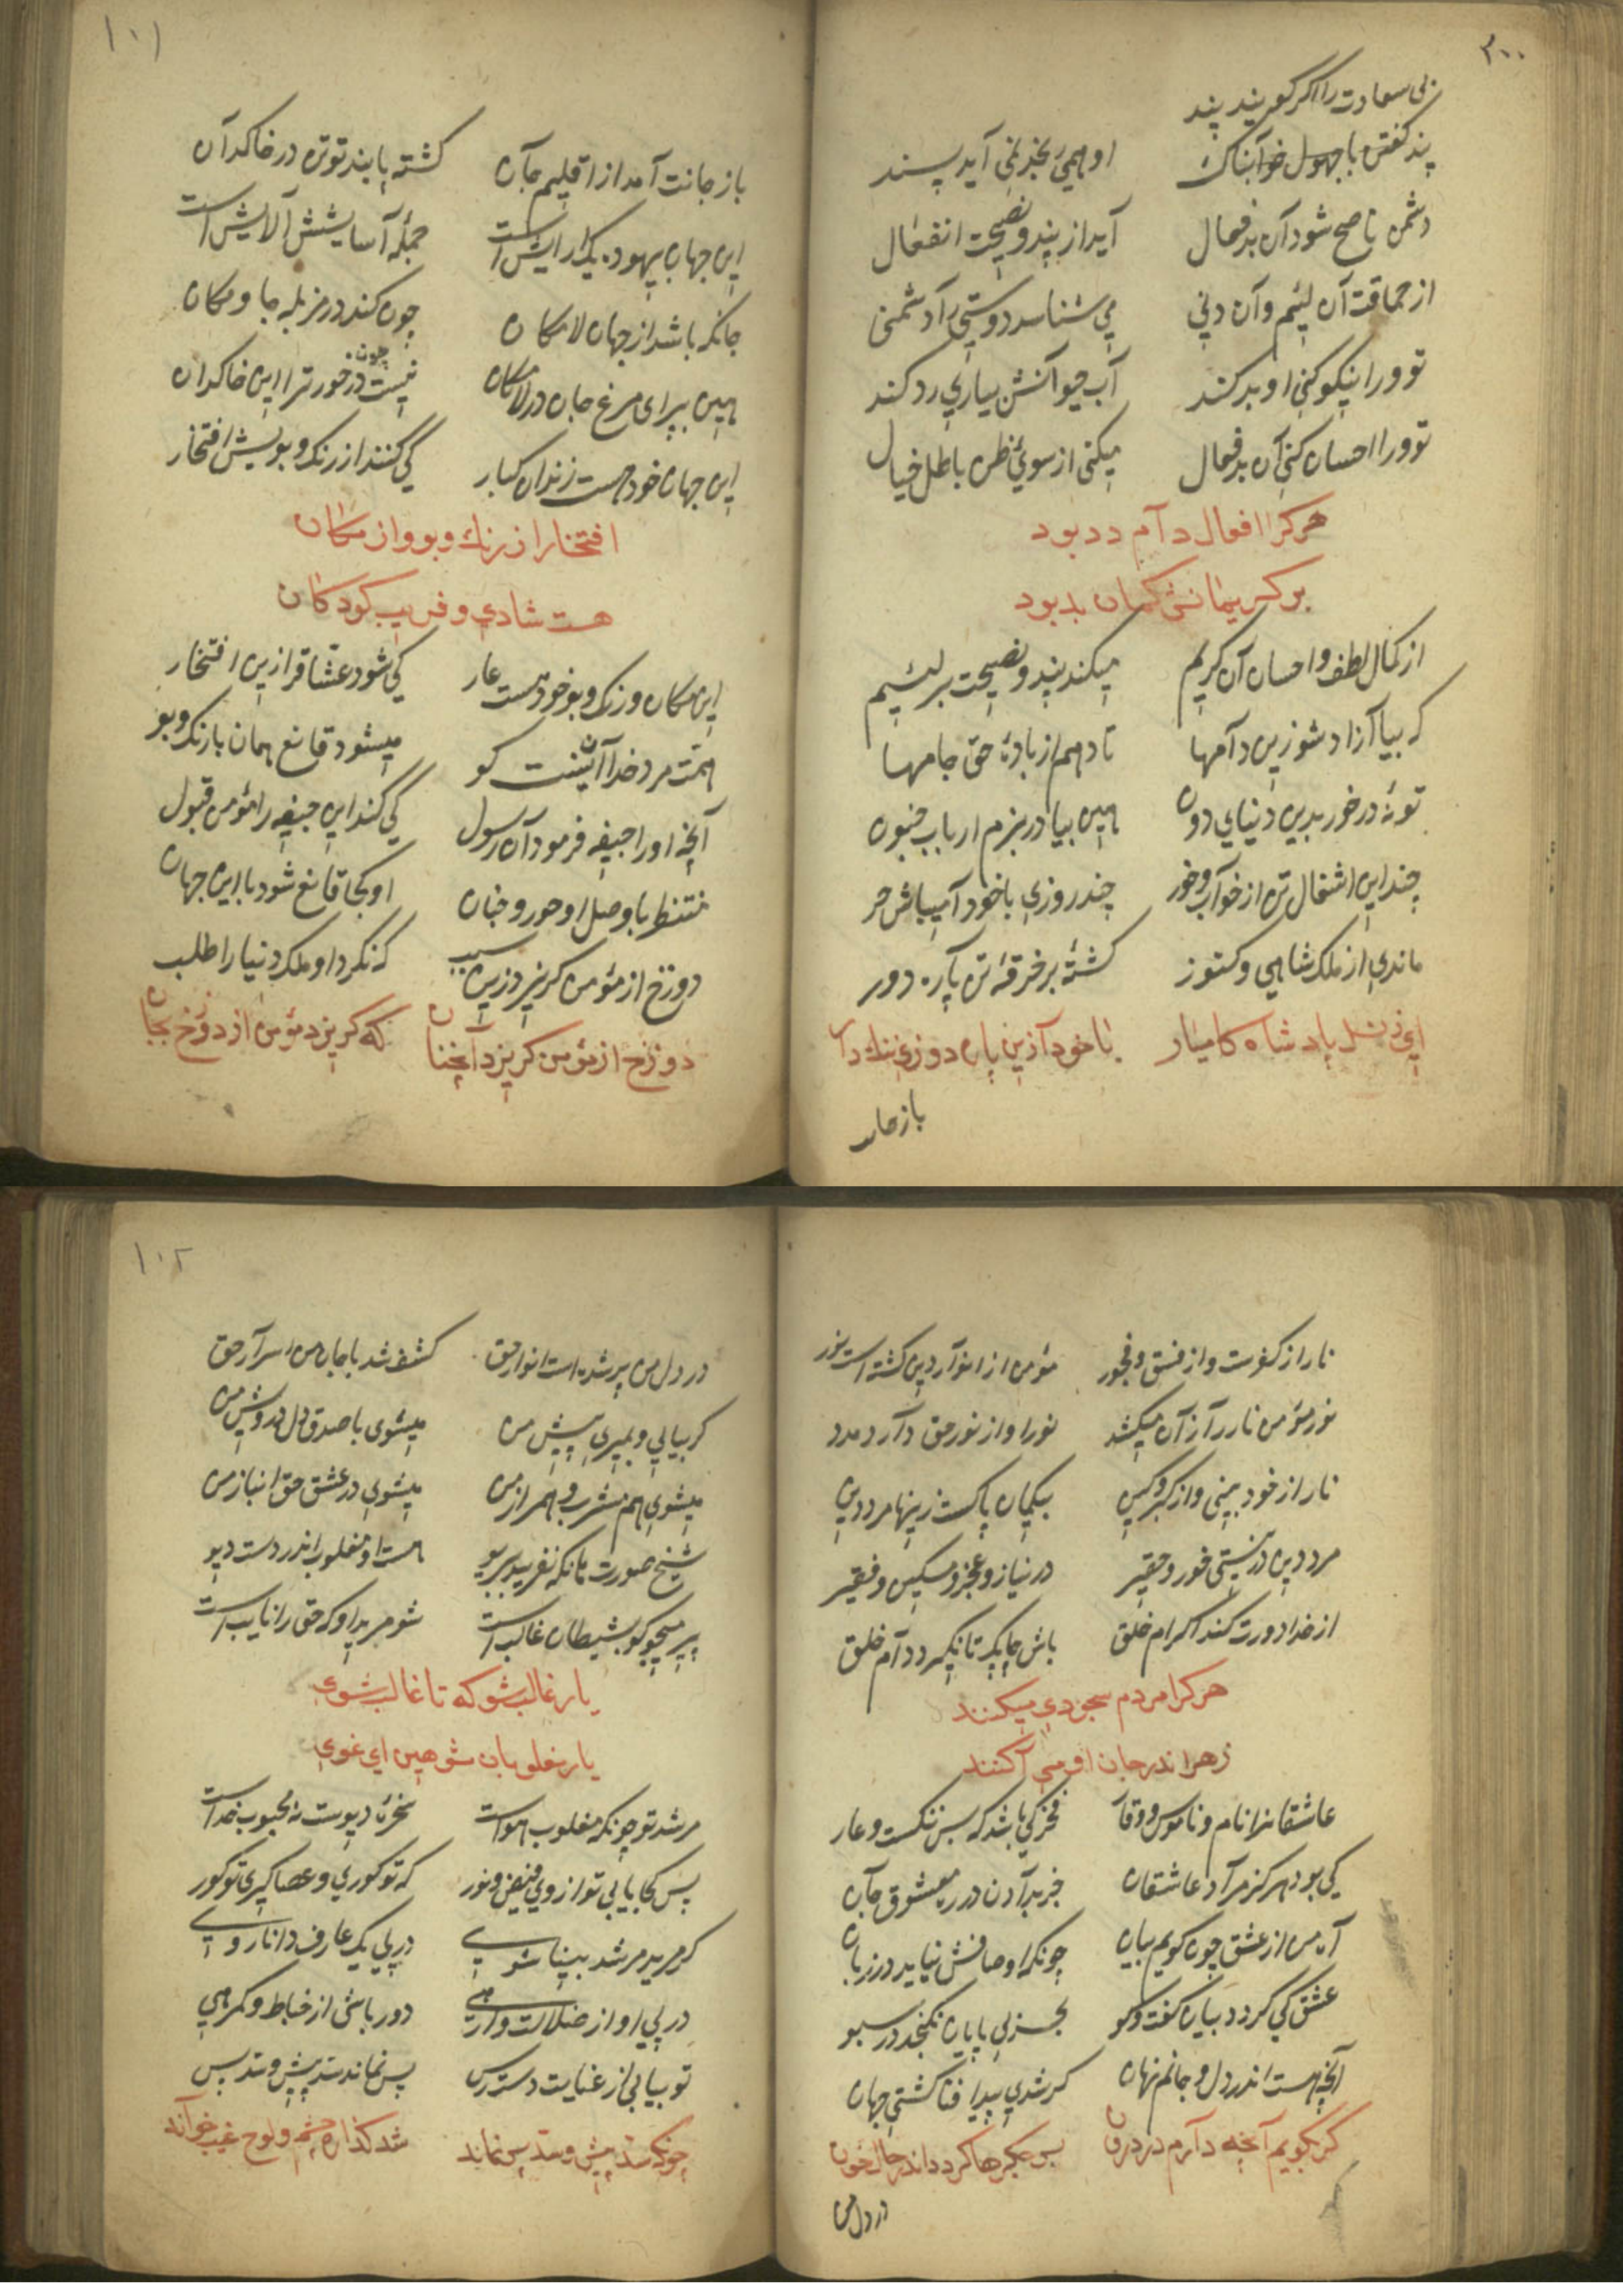 ٢٠٠
بی سعادت را اگر گویند پند
او همی بخذ نمی آید پسند
پند گفتن با جهول خوابناک
دشمن ناصح شود آن بدفعال
آید از پند و نصیحت انفعال
از حماقت آن لئیم و آن دنی
می شناسد دوستی را دشمنی
تو ورا نیکو کنی او بد کند
آب حیوانش بیاری رد کند
تو ورا احسان کنی آن بدفعال
میکنی از سوی ظن باطل خیال
هرکرا افعال دام دد بود
بر کریمانش کمان بد بود
از کمال لطف و احسان آن کریم
میکند پند و نصیحت بر لئیم
که بیا آزاد شو زین دآمها
تا دهم از بادهٔ حق جامها
تو نهٔ در خور بدین دنیای دون
هین بیا در بزم ارباب جنون
چند این اشغال تن از خوآب و خور
چند روزی با خود آ میباش حر
ماندی از ملک شاهی و کنوز
کشتهٔ بر خرقهٔ تن پاره دوز
ای ز نسل پادشاه کامیار
با خود آ زین پاره دوزی ننک دار
باز جانت
١٠١
باز جانت آمد از اقلیم جآن
کشته پابند تو تن در خاکدآن
این جهان بیهوده یک آرایش است
جمله آسایشش آلایش است
جانکه باشد از جهان لامکان
چون کند در مزبله جا و مکان
هین بپر ای مرغ جان در لامکان
نیست چون در خور ترا این خاکدان
این جهان خود هست زندان کبار
کی کنند از رنک و بویش افتخار
افتخار از رنك و بو و از مکان
هست شادی و فریب کودکان
این مکان و رنک و بو خود هست عار
کی شود عشاقرا زین افتخار
همت مرد خدا آنست کو
میشود قانع همان با رنک و بو
آنچه او را جیفه فرمود آن رسول
کی کند این جیفه را مؤمن قبول
منتظر با وصل او حور و جنان
او کجا قانع شود با این جهان
دوزخ از مؤمن کریزد زین سبب
که نکرد او ملک دنیا را طلب
دوزخ از مؤمن کریزد آنچنان
که کریزد مؤمن از دوزخ بجان
نار از کفرست و از فسق و فجور
مؤمن از انوآر دین کشته است نور
نور مؤمن نار را ز آن میکشد
نور او از نور حق دآرد مدد
نار از خود بینی و از کبر و کین
بیکمان پاکست زینها مرد دین
مرد دین در نیستی خور و حقیر
در نیاز و عجز و مسکین و فقیر
از خدا دورت کند اکرام خلق
باش چابک تا نکیرد دآم خلق
هرکرا مردم سجودی میکنند
زهر اندر جان او می آکنند
عاشقانرا نام و ناموس و وقار
فخر کی باشد که بس ننکست و عار
کی بود هرکز مرآد عاشقان
جز بدآدن در ره معشوق جآن
آه من از عشق چون کویم بیان
چونکه اوصافش نیاید در زبان
عشق کی کردد بیان کفت و کو
بحر بی پایان نکنجد در سبو
آنچه هست اندر دل و جانم نهان
کر شدی پیدا فنا کشتی جهان
کر بکویم آنچه دآرم در درون
بس جکرها کردد اندر حال خون
در دل من
١٠٢
در دل من پر شده است انوار حق
کشف شد با جان من اسرآر حق
کر بیایی و بمیری پیش من
میشوی با صدق دل درویش من
میشوی هم مشرب و همراز من
میشوی در عشق حق انباز من
شیخ صورت مانکه نفریبد بریو
هست او مغلوب اندر دست دیو
پیر میجو کو بشیطان غالب است
شو مرید او که حق را نایب است
یار غالب شو که تا غالب شوی
یار مغلوبان مشو هین ای غوی
مرشد تو چونکه مغلوب هواست
سخرهٔ دیوست نه محبوب خداست
پس کجا یابی تو از وی فیض و نور
که تو کوری و عصا کیری تو کور
کر مرید مرشد بینا شوی
در پی یک عارف دانا روی
در پی او از ضلالت وارهی
دور باشی از خباط و کمرهی
تو بیابی از عنایت دسترس
پس نماند سد پیش و سد پس
چونکه سد پیش و سد پس نماند
شد کذاره چشم و لوح غیب خوآند